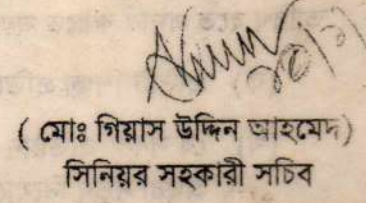 ( মোঃ গিয়াস উদ্দিন আহমেদ)
সিনিয়র সহকারী সচিব